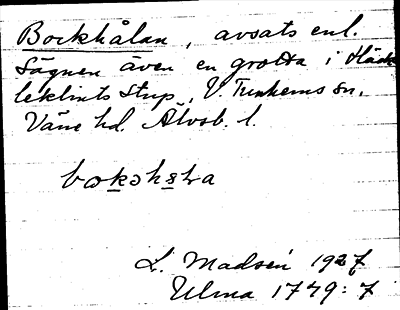 Bockhålan, avsats enl.
Sägnen även en grotta i Häck
leklints Stup, V. Tunhems sn.
Väne hd. Älvsb. l.
L. Madsén 1927
Ulma 1749:7